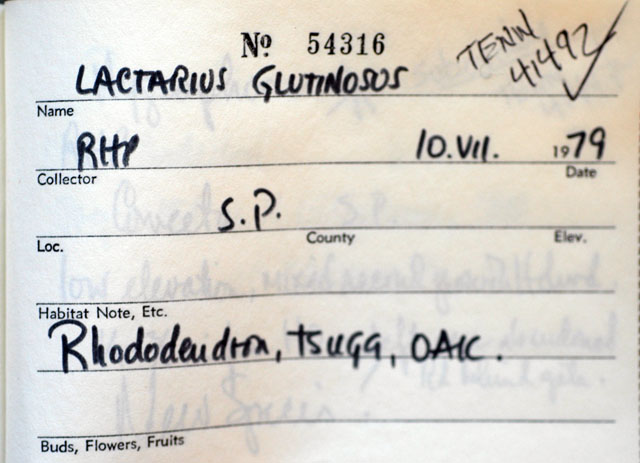 Nº 54316
TENN
41492
LACTARIUS GLUTINOSUS
Name
RHP 10.VII. 1979
Collector Date
S.P.
Loc. County Elev.
Habitat Note, Etc.
Rhododendron, TSUGA, OAK.
Buds, Flowers, Fruits